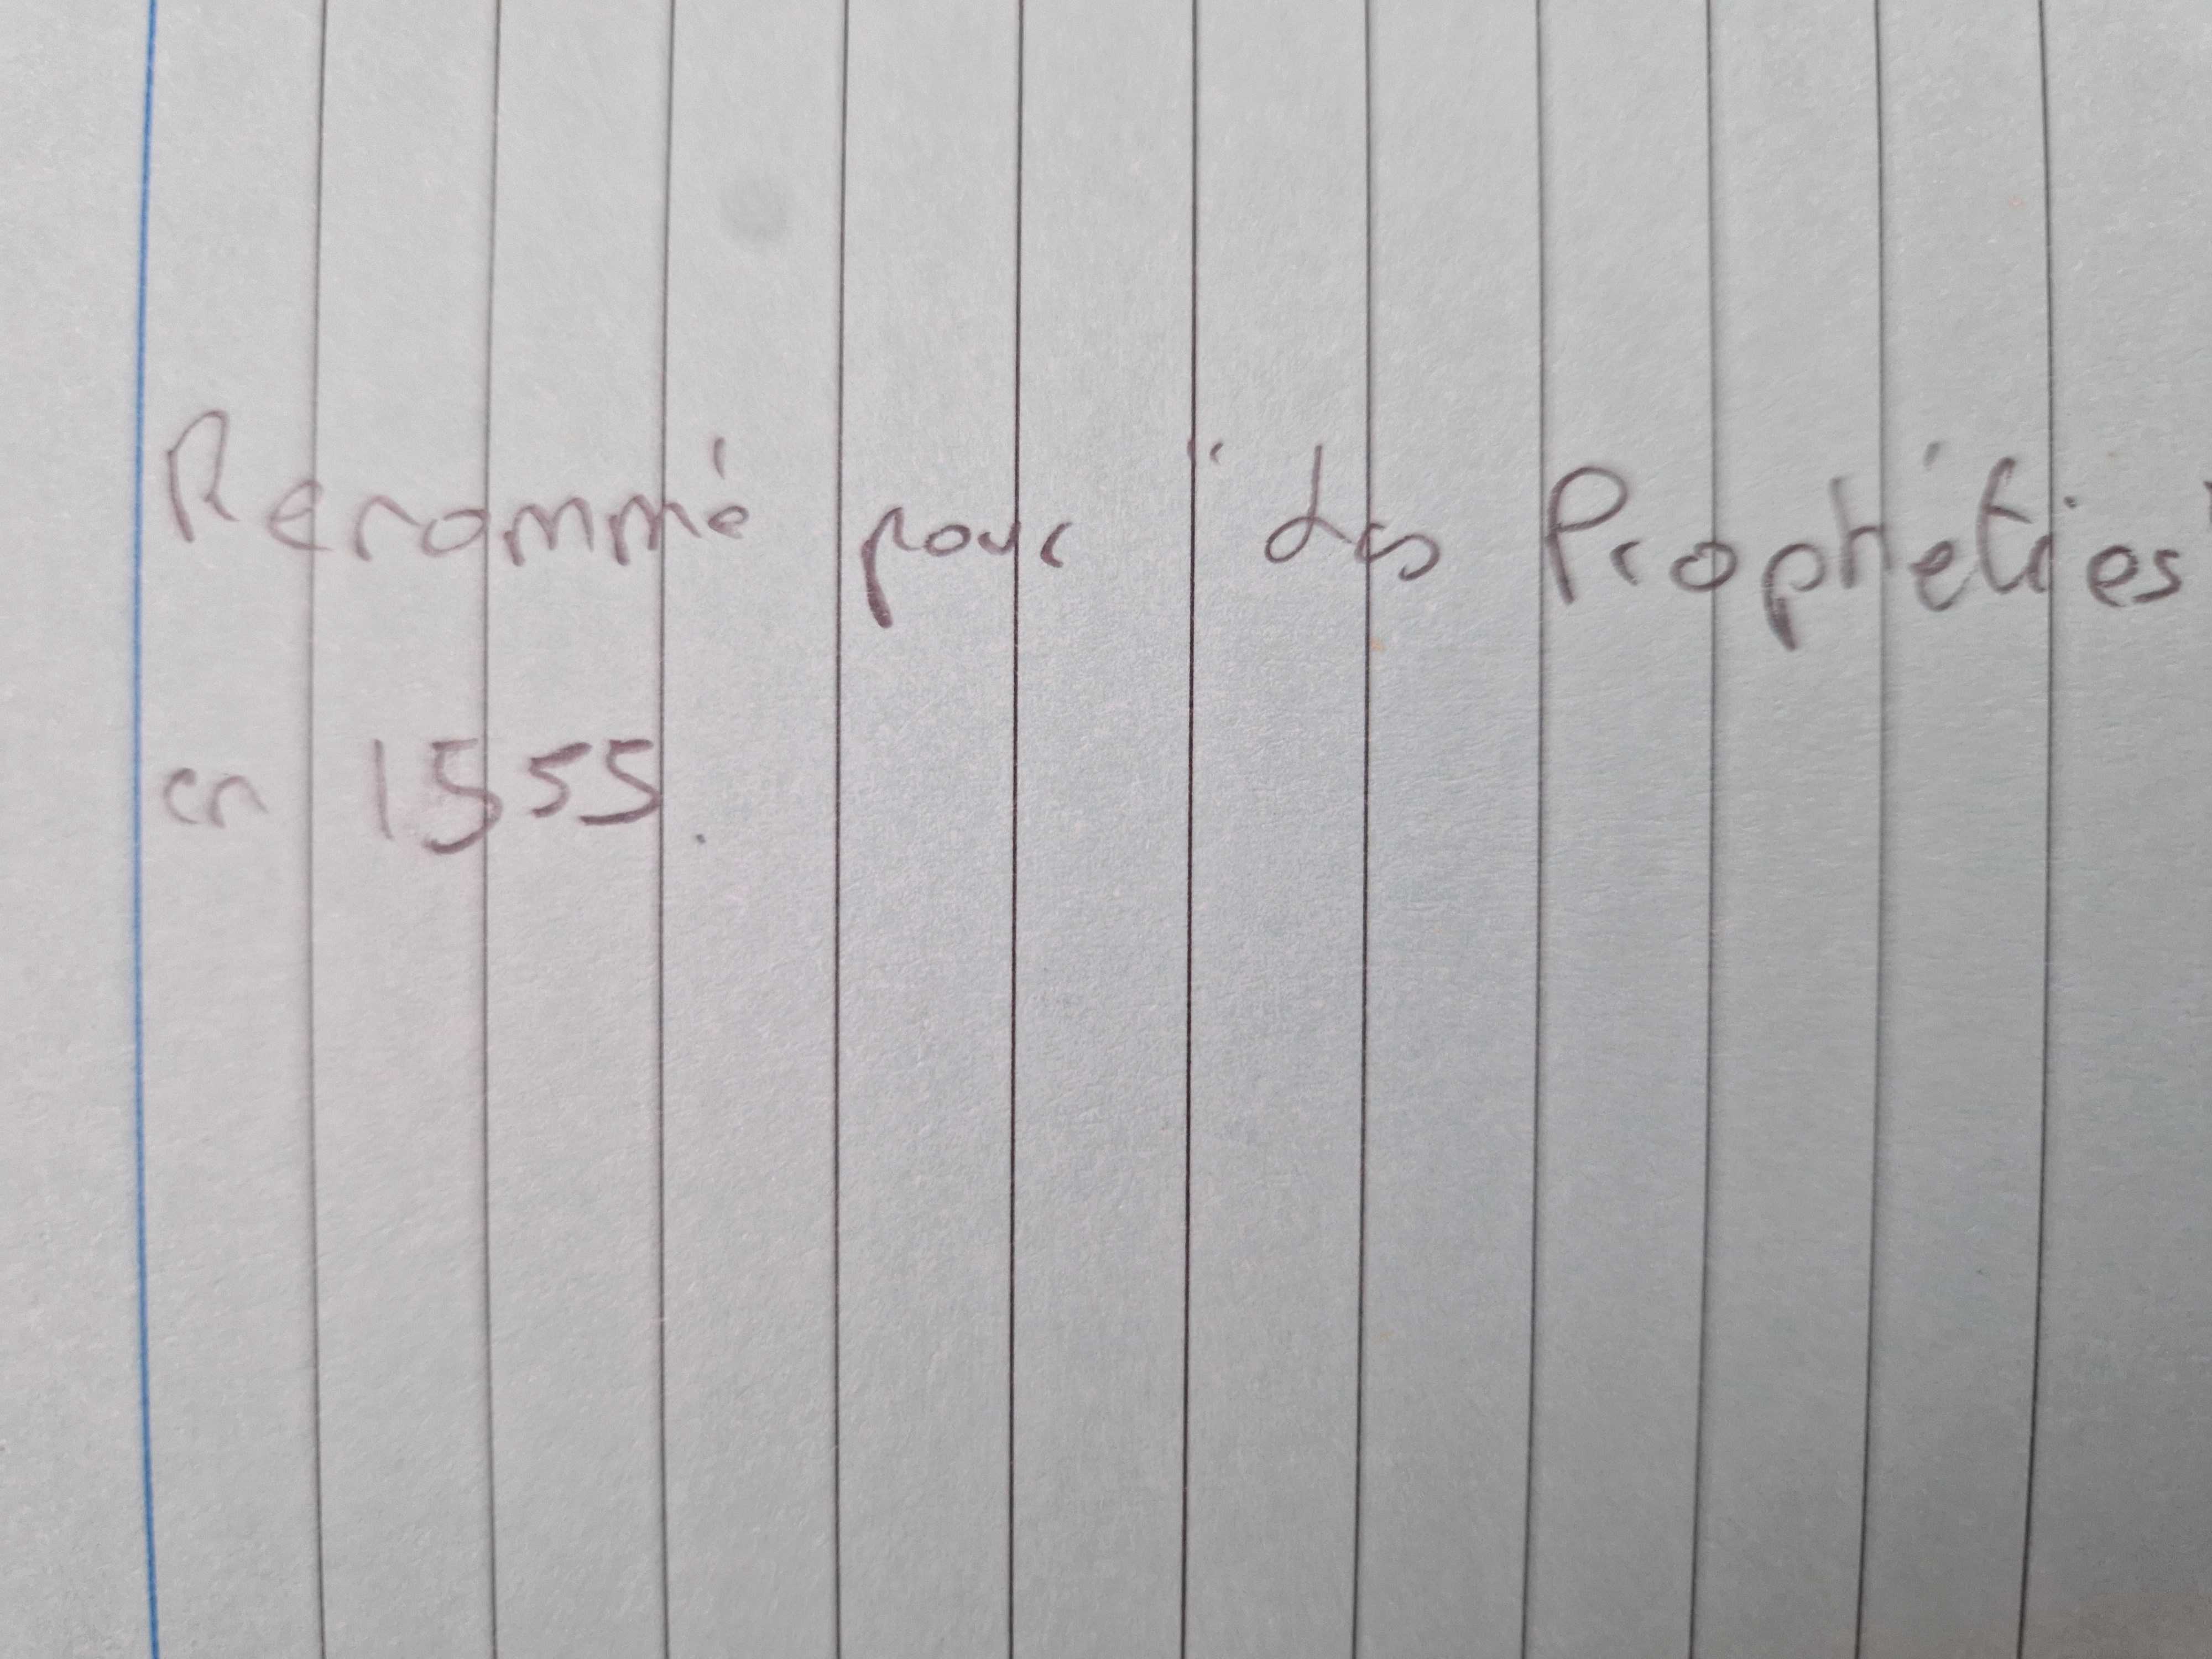 Renommé pour "Les Prophéties"
en 1555.